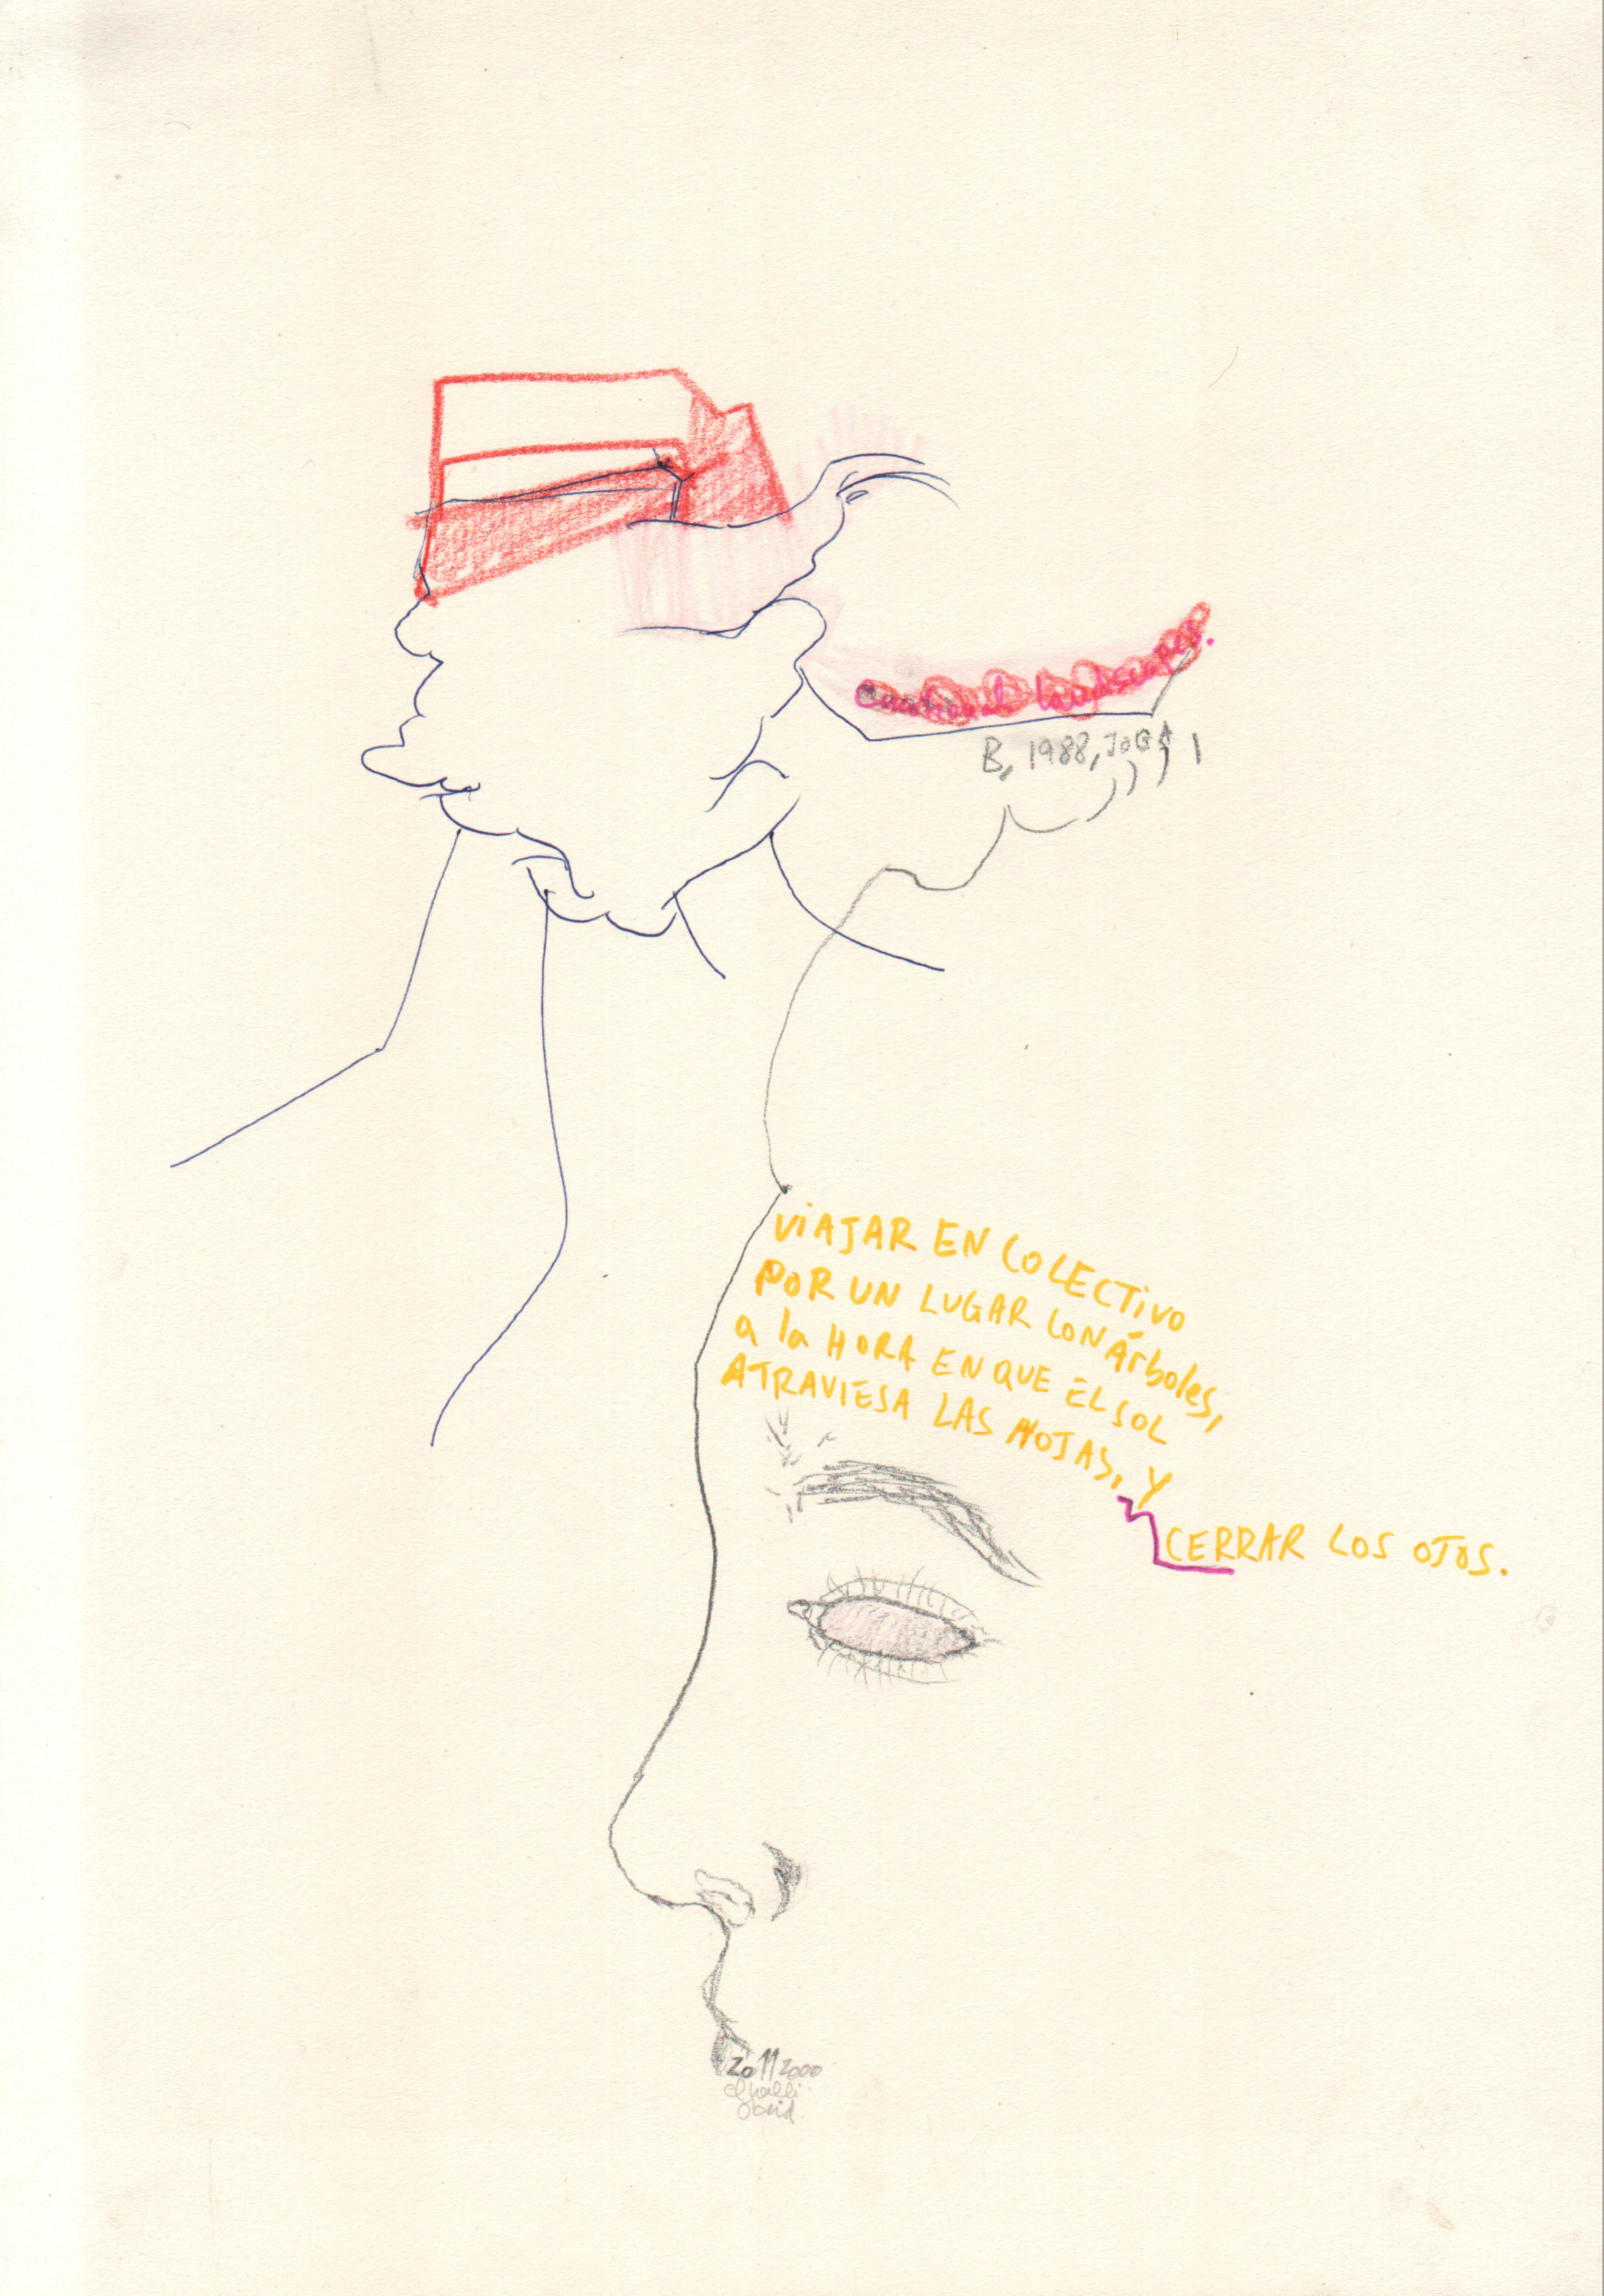 Emotional landscapes.
B, 1988, JOGA
VIAJAR EN COLECTIVO
POR UN LUGAR CON Árboles,
a la HORA EN QUE EL SOL
ATRAVIESA LAS HOJAS, Y
CERRAR LOS OJOS.
20112000